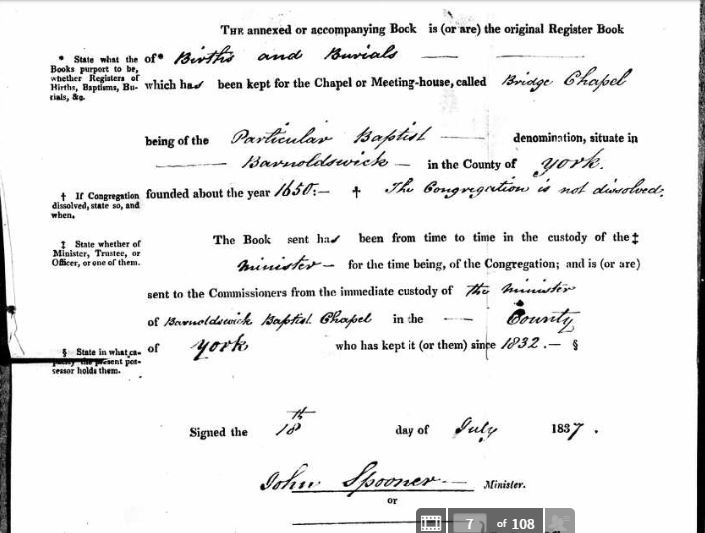 THE annexed or accompanying Book is (or are) the original Register Book
* State what the Books purport to be, whether Registers of Births, Baptisms, Burials, &c.
of* Births and Burials
which has been kept for the Chapel or Meeting-house, called Bridge Chapel
being of the Particular Baptist denomination, situate in
Barnoldswick — in the County of York.
† If Congregation dissolved, state so, and when.
founded about the year 1650:— † The Congregation is not dissolved.
‡ State whether of Minister, Trustee, or Officer, or one of them.
The Book sent has been from time to time in the custody of the‡
Minister — for the time being, of the Congregation; and is (or are)
sent to the Commissioners from the immediate custody of the Minister
of Barnoldswick Baptist Chapel in the — County
of York who has kept it (or them) since 1832.— §
§ State in what capacity the present possessor holds them.
Signed the 18th day of July 1837.
John Spooner — Minister.
or
7 of 108